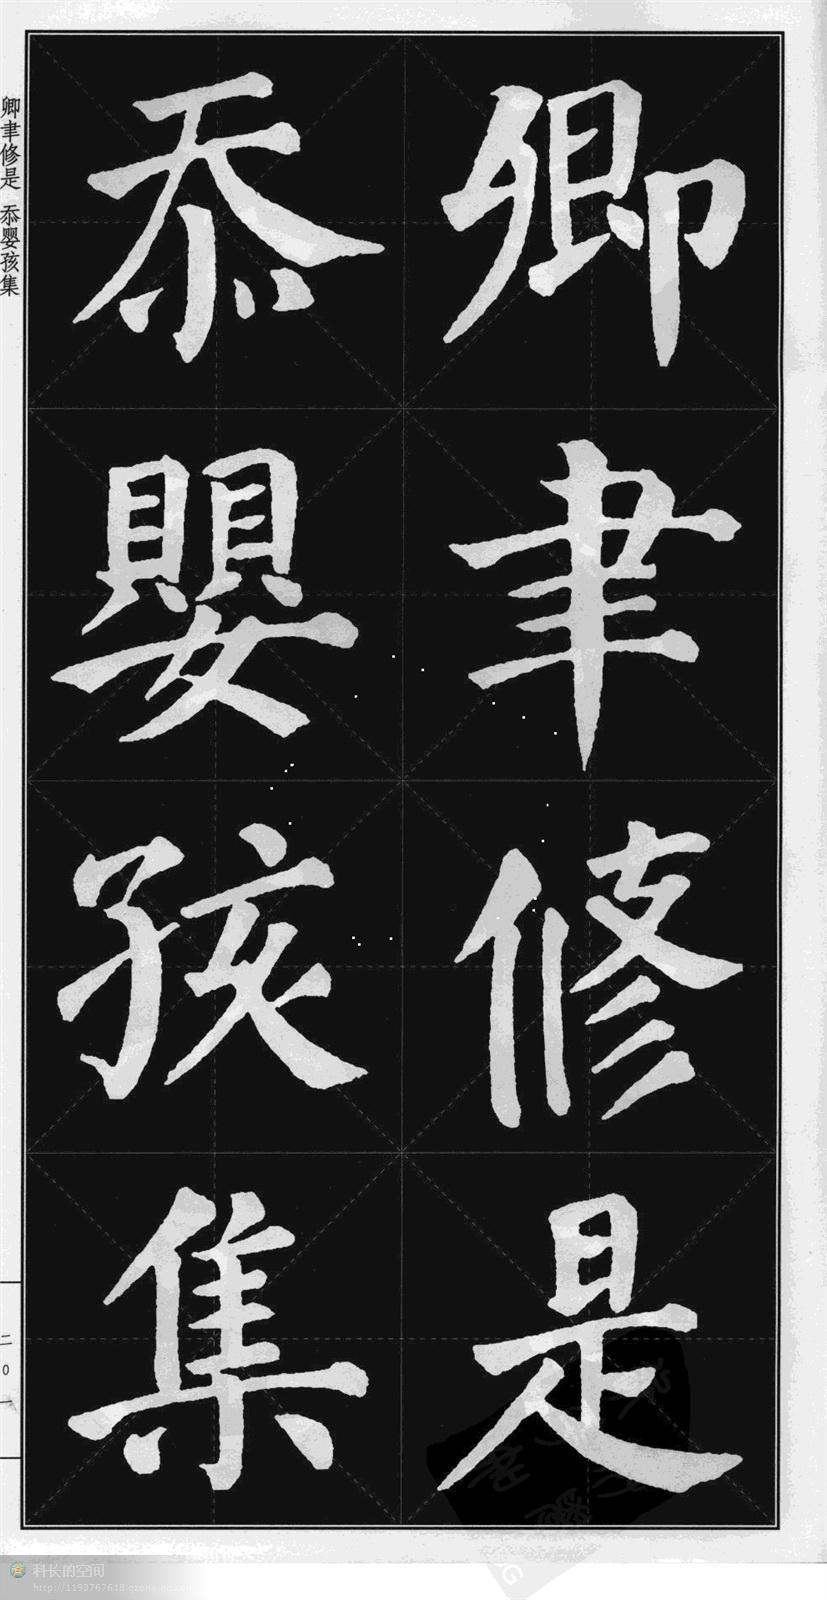 卿聿修是
忝嬰孩集
卿聿修是 忝婴孩集
二〇一
科长的空间
http://1193767618.qzone.qq.com